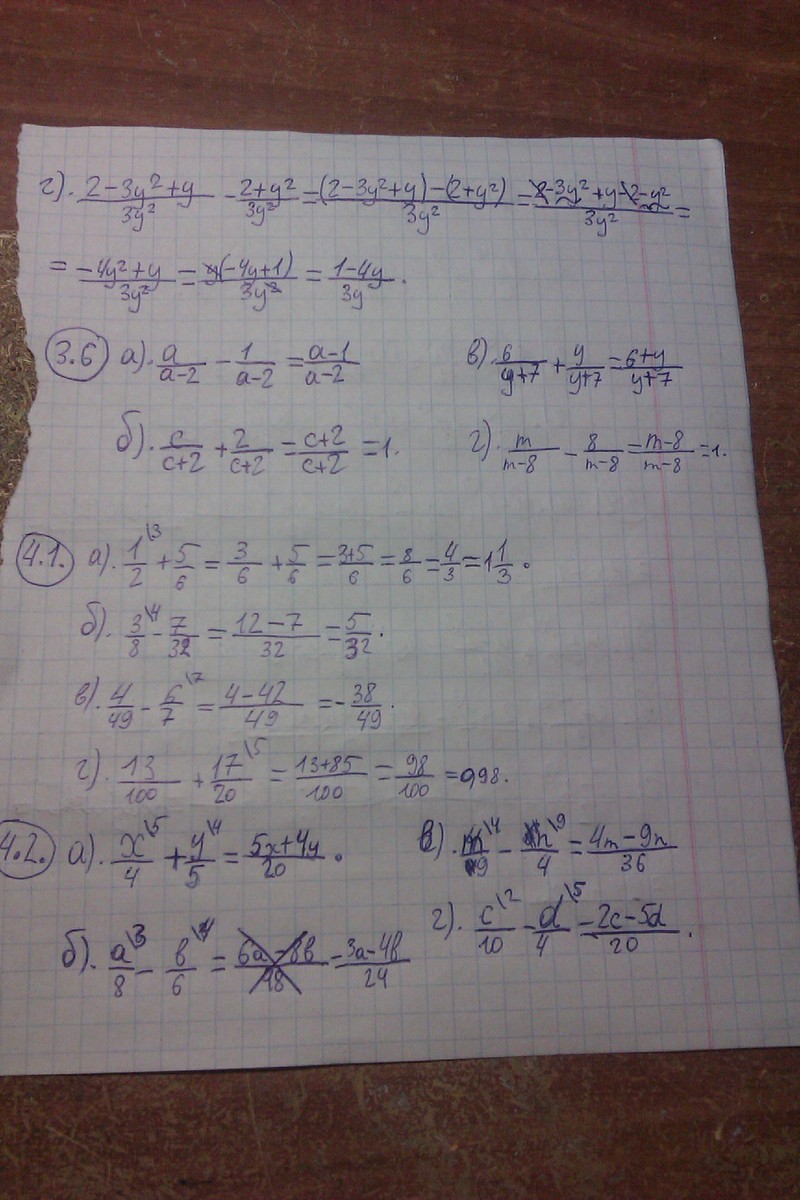 г). (2-3y²+y)/3y² - (2+y²)/3y² = ((2-3y²+y)-(2+y²))/3y² = (2-3y²+y-2-y²)/3y² =
= (-4y²+y)/3y² = y(-4y+1)/3y² = (1-4y)/3y.
3.6 а). a/(a-2) - 1/(a-2) = (a-1)/(a-2)
в). 6/(y+7) + y/(y+7) = (6+y)/(y+7)
б). c/(c+2) + 2/(c+2) = (c+2)/(c+2) = 1.
г). m/(m-8) - 8/(m-8) = (m-8)/(m-8) = 1.
4.1. а). 1\3/2 + 5/6 = 3/6 + 5/6 = (3+5)/6 = 8/6 = 4/3 = 1 1/3.
б). 3\4/8 - 7/32 = (12-7)/32 = 5/32.
в). 4/49 - 6\7/7 = (4-42)/49 = -38/49.
г). 13/100 + 17\5/20 = (13+85)/100 = 98/100 = 0,98.
4.2. а). x\5/4 + y\4/5 = (5x+4y)/20.
в). m\4/9 - n\9/4 = (4m-9n)/36
б). a\3/8 - b\4/6 = (6a-8b)/48 = (3a-4b)/24
г). c\2/10 - d\5/4 = (2c-5d)/20.